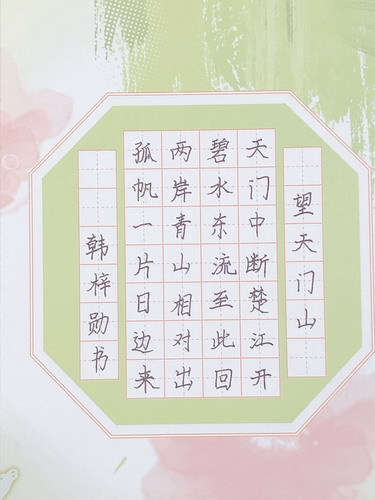 望天门山
天门中断楚江开
碧水东流至此回
两岸青山相对出
孤帆一片日边来
韩梓勋书